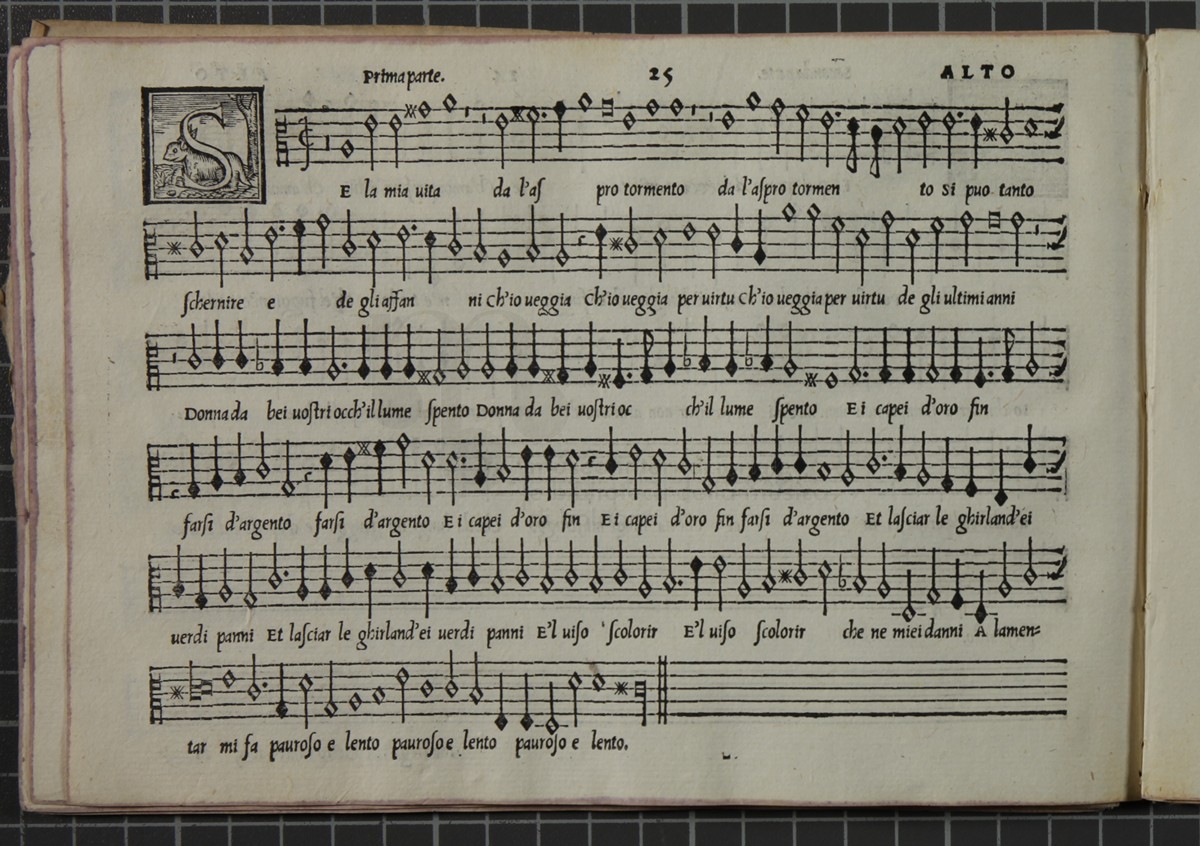 Prima parte. 25 ALTO
SE la mia uita da l'as pro tormento da l'aspro tormen to si puo tanto
schernire e de gli affan ni Ch'io ueggia Ch'io ueggia per uirtu Ch'io ueggia per uirtu de gli ultimi anni
Donna da bei uostri occh'il lume spento Donna da bei uostri oc ch'il lume spento E i capei d'oro fin
farsi d'argento farsi d'argento E i capei d'oro fin E i capei d'oro fin farsi d'argento Et lasciar le ghirland'ei
uerdi panni Et lasciar le ghirland'ei uerdi panni E'l uiso scolorir E'l uiso scolorir che ne miei danni A lamen=
tar mi fa pauroso e lento pauroso e lento pauroso e lento.